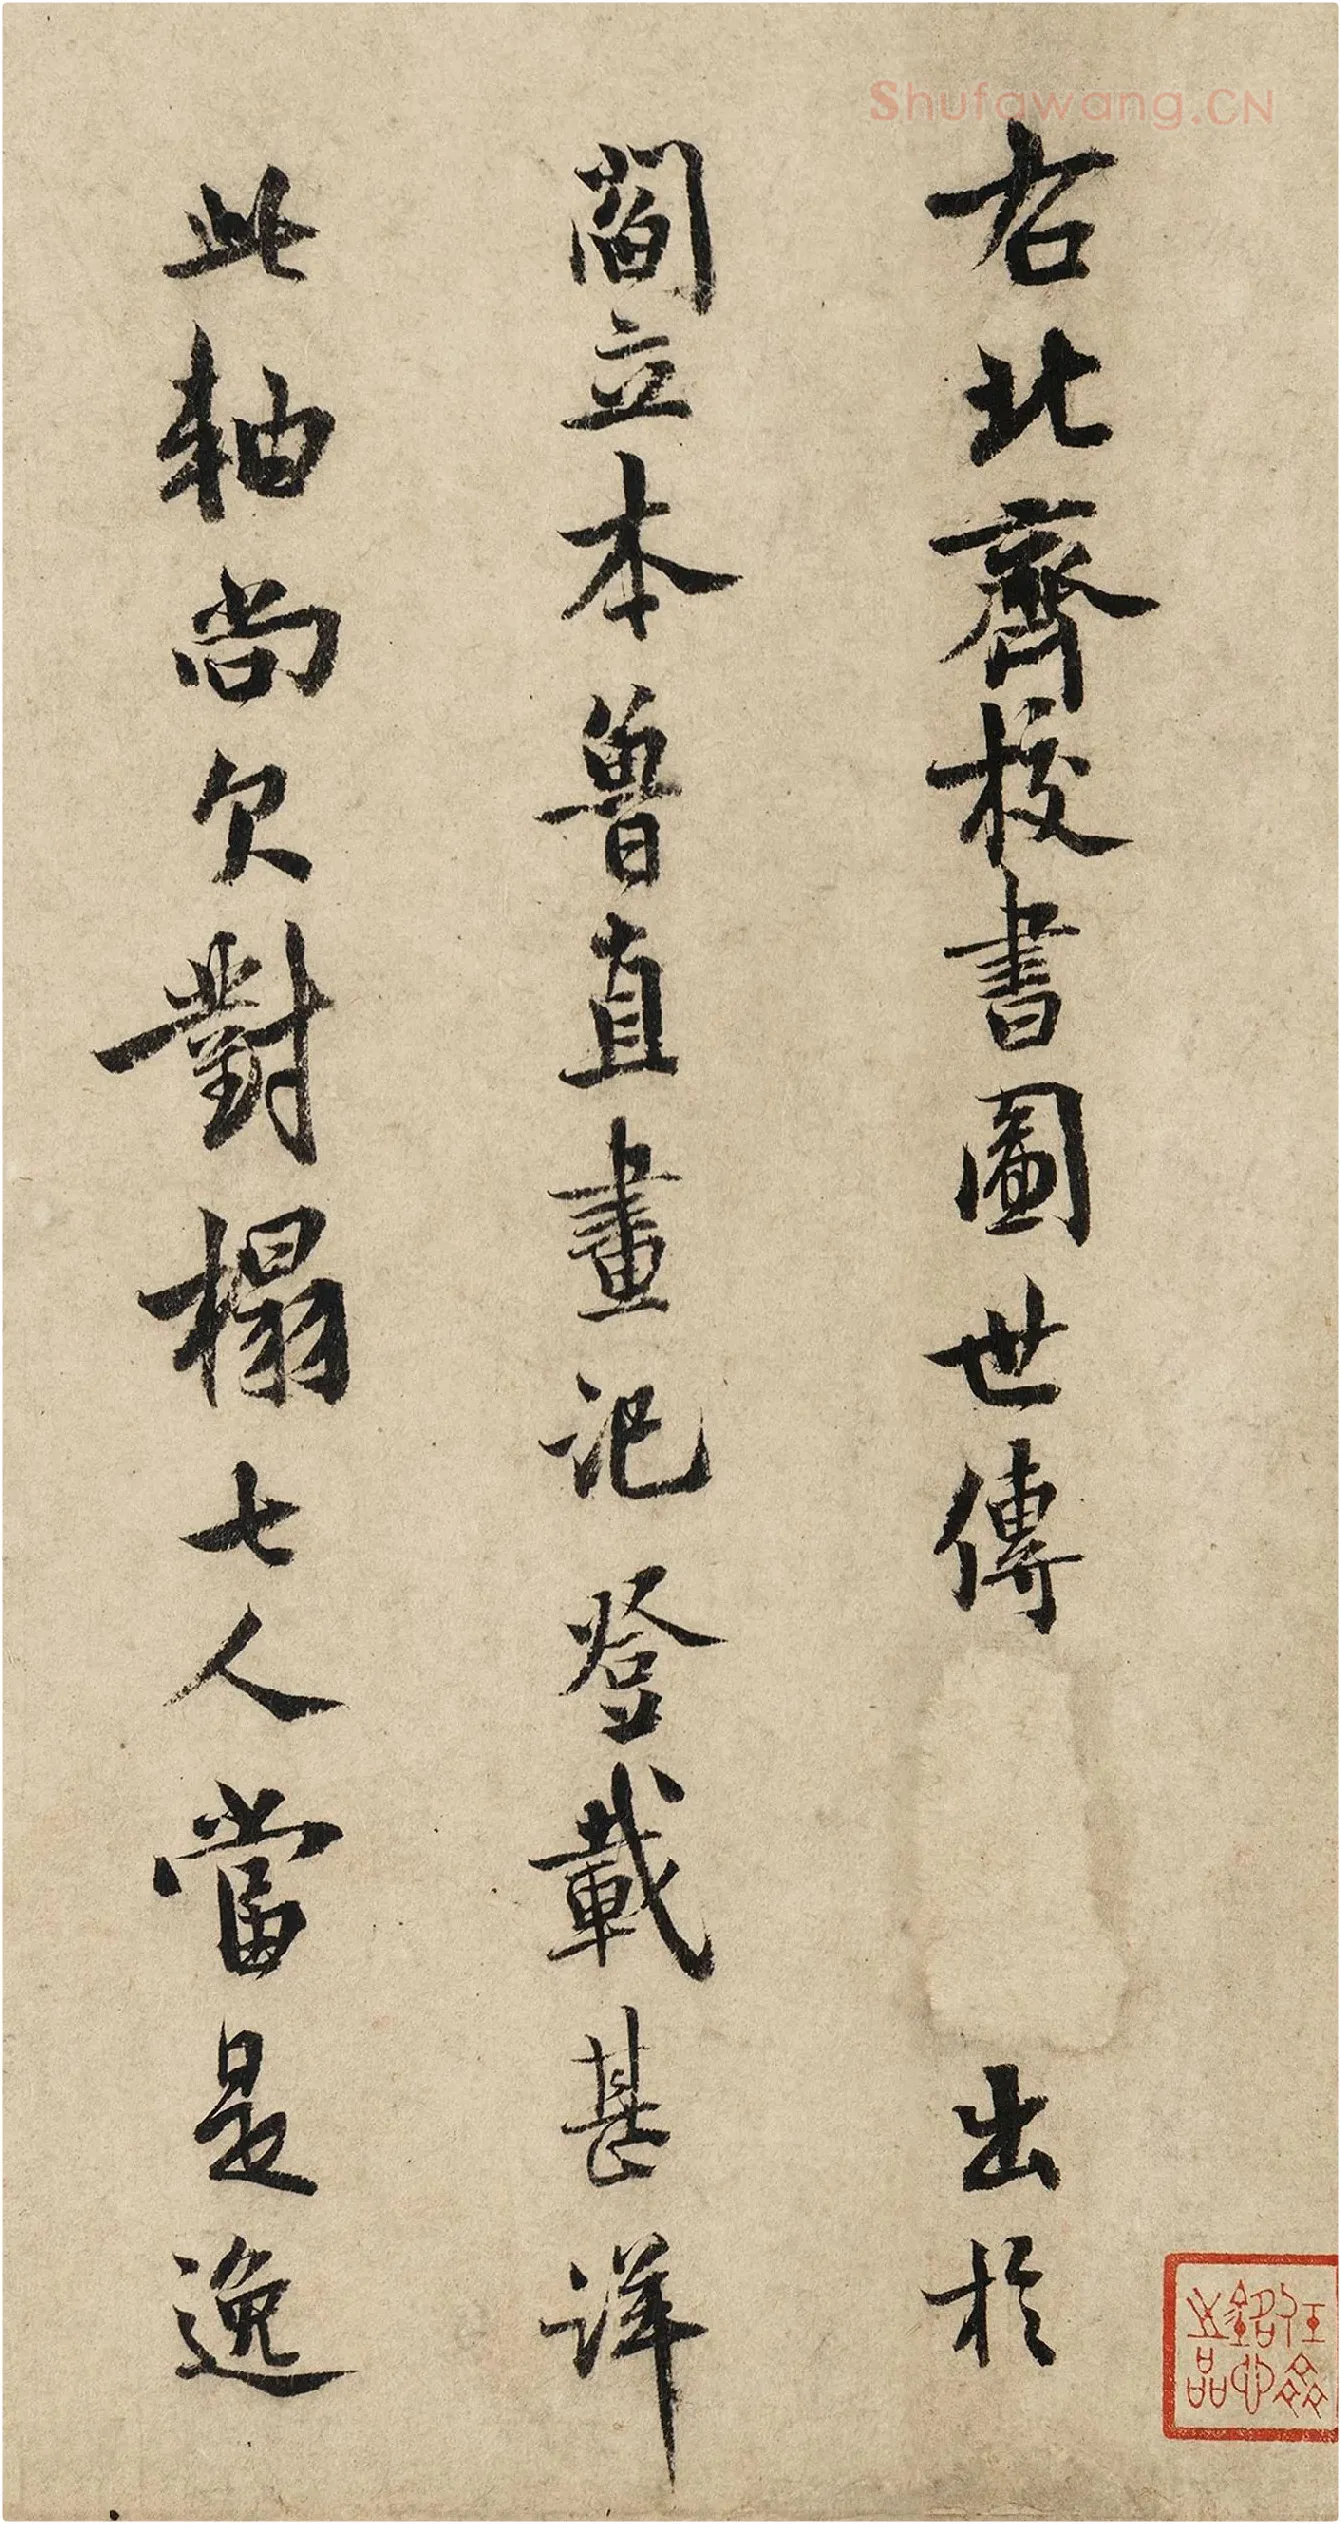 Shufawang.CN
右北齊校書圖世傳出於
閻立本魯直畫記登載甚詳
此軸尚欠對榻七人當是逸